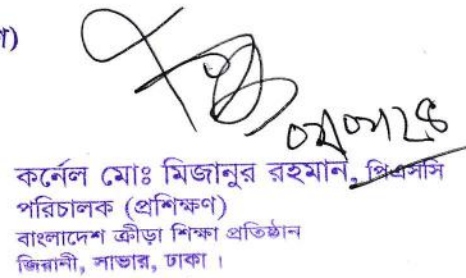 )
কর্নেল মোঃ মিজানুর রহমান, পিএসসি
পরিচালক (প্রশিক্ষণ)
বাংলাদেশ ক্রীড়া শিক্ষা প্রতিষ্ঠান
জিরানী, সাভার, ঢাকা ।